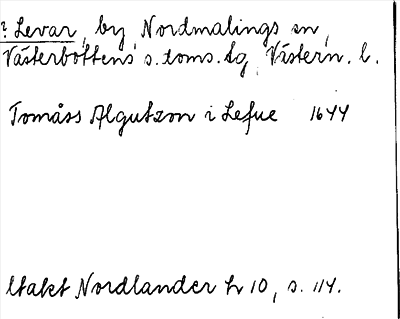 ? Levar, by, Nordmalings sn,
Västerbottens s. doms. tg, Västern. l.
Tomåss Algutzon i Lefue 1644
Utakt Nordlander hr 10, s. 114.